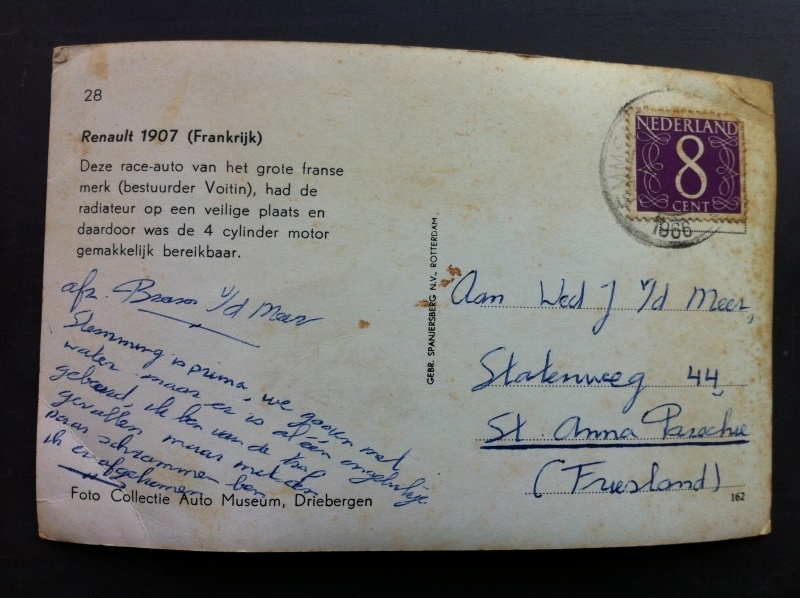 28
Renault 1907 (Frankrijk)
Deze race-auto van het grote franse
merk (bestuurder Voitin), had de
radiateur op een veilige plaats en
daardoor was de 4 cylinder motor
gemakkelijk bereikbaar.
afz. v/d Meer
Stemming is prima, we gooien met
water maar er is al één ongelukje
gebeurd ik ben van de trap
gevallen maar met een
paar schrammen ben
ik er afgekomen
Foto Collectie Auto Museum, Driebergen
GEBR. SPANJERSBERG N.V., ROTTERDAM
NEDERLAND
8
CENT
1966
Aan Wed J v/d Meer,
Statenweg 44
St. Anna Parochie
(Friesland)
162